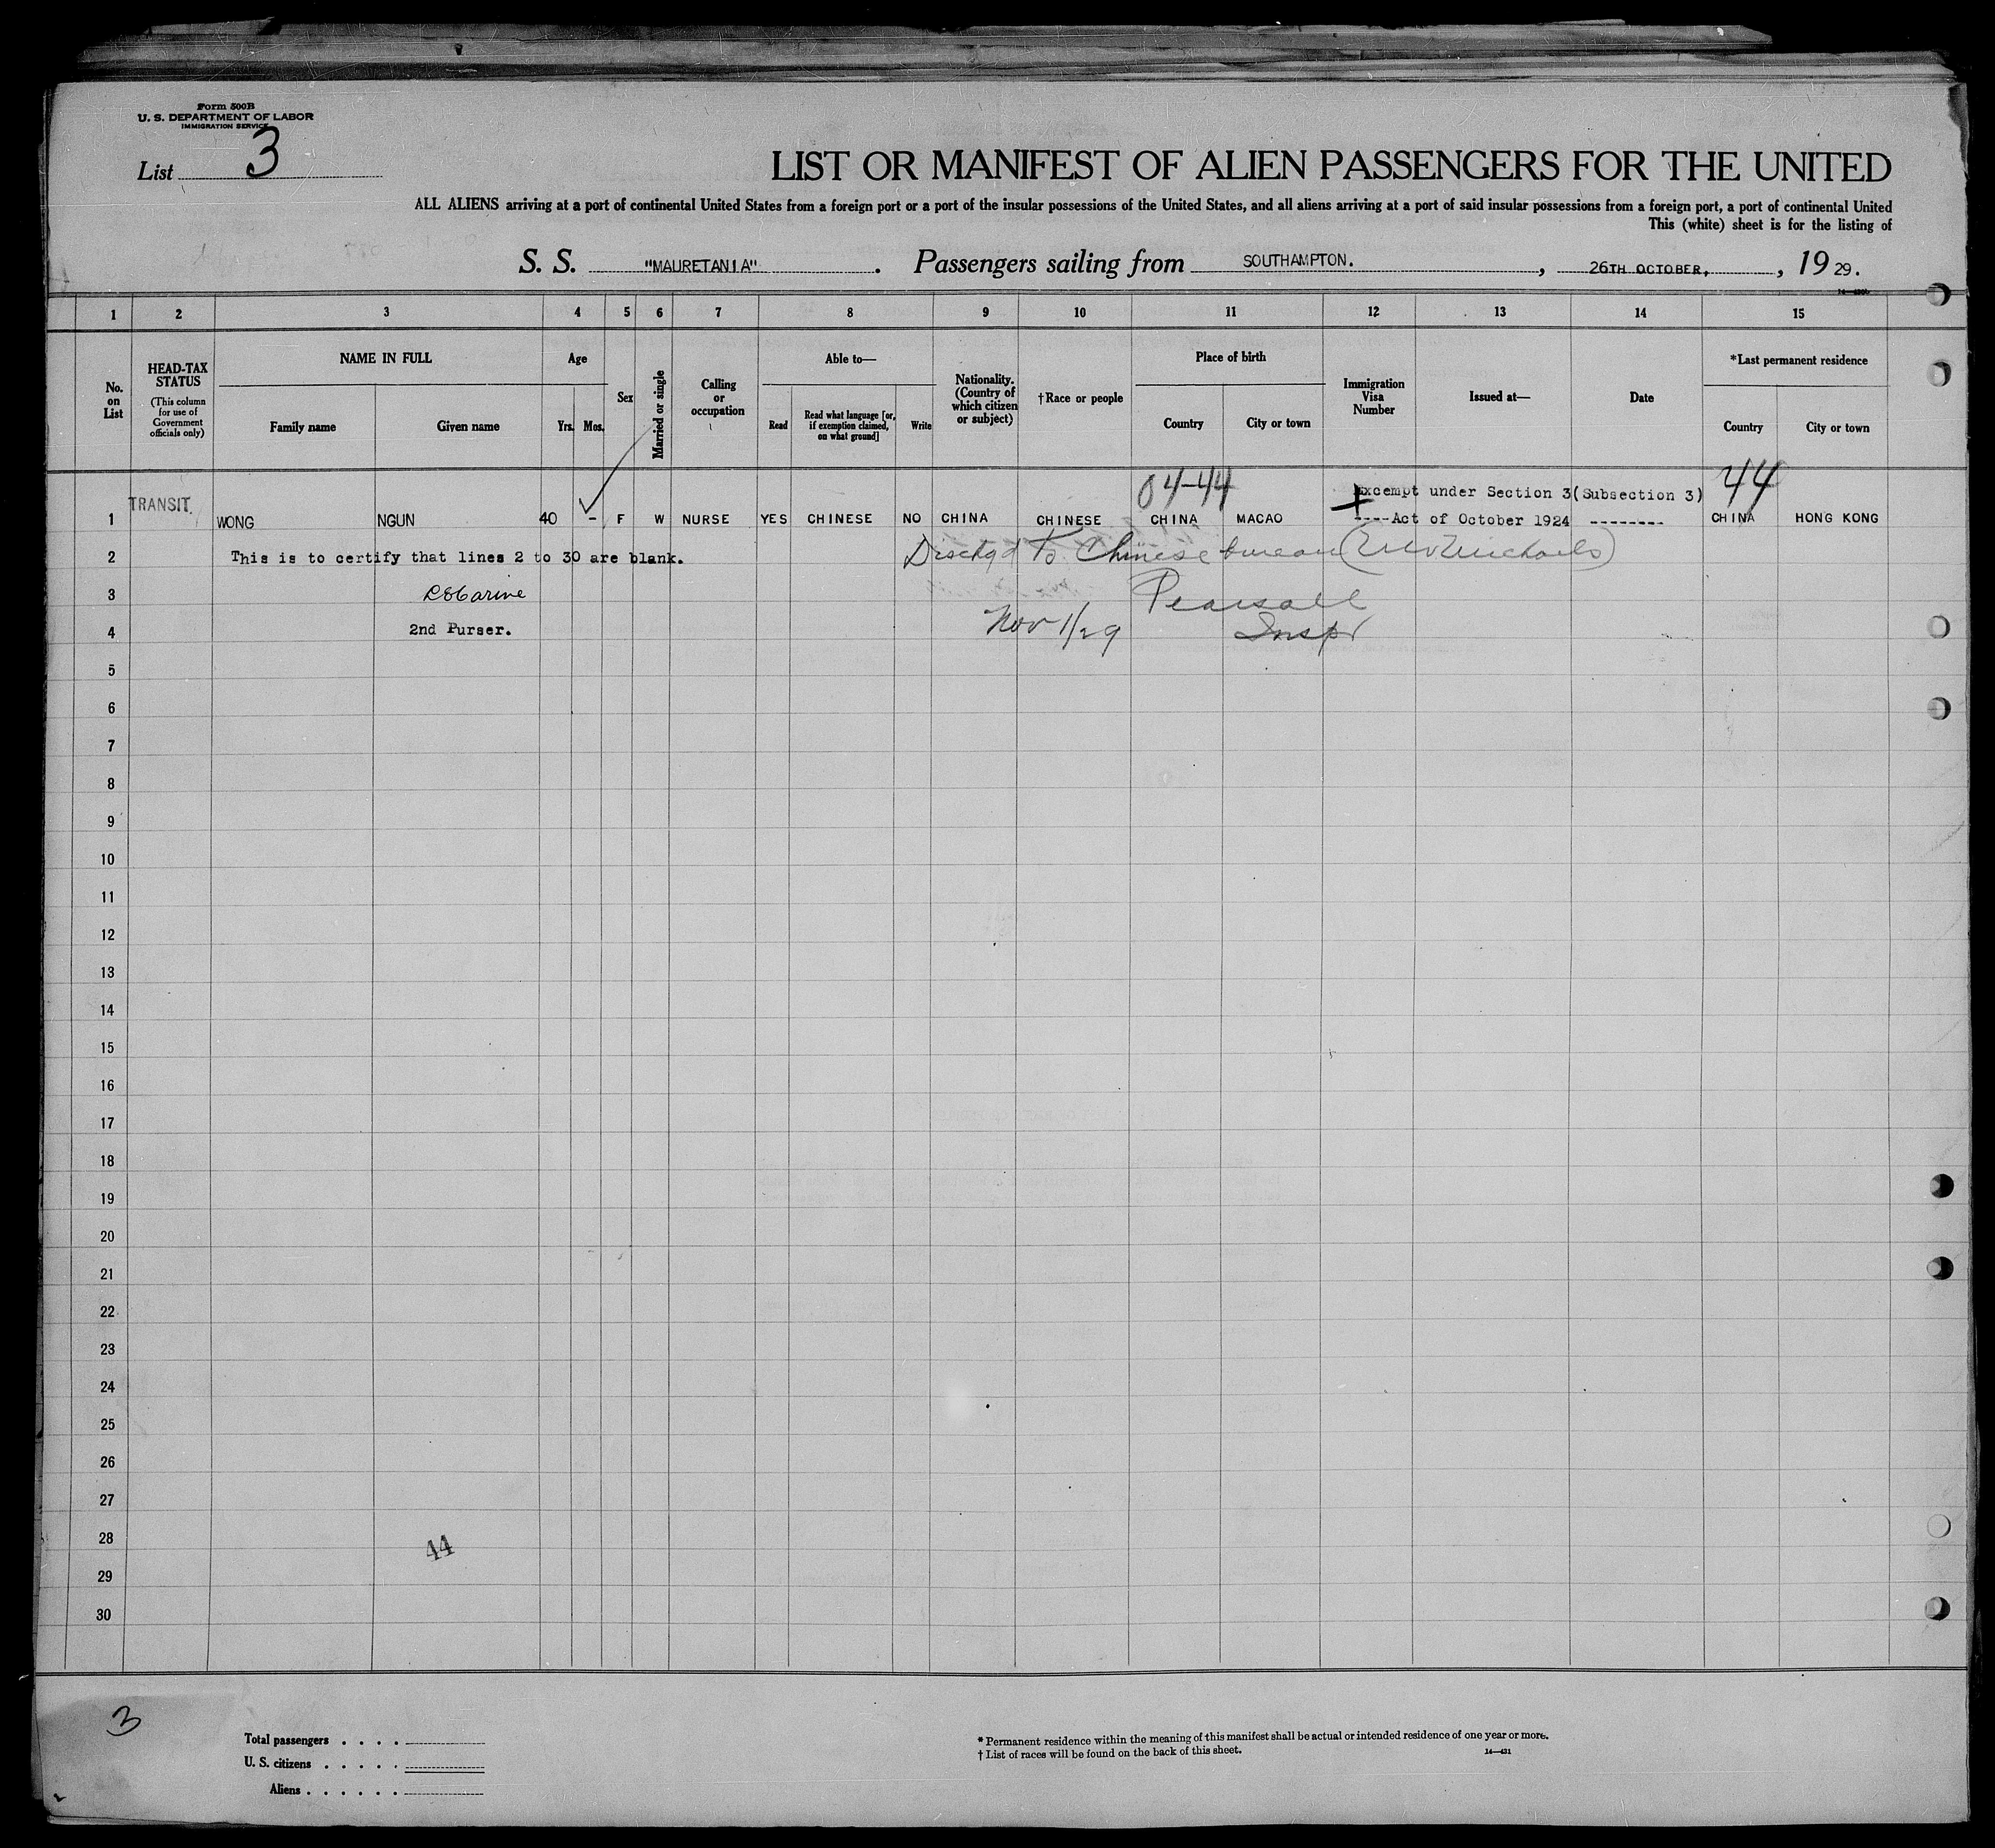 Form 500B
U. S. DEPARTMENT OF LABOR
IMMIGRATION SERVICE
List 3
LIST OR MANIFEST OF ALIEN PASSENGERS FOR THE UNITED
ALL ALIENS arriving at a port of continental United States from a foreign port or a port of the insular possessions of the United States, and all aliens arriving at a port of said insular possessions from a foreign port, a port of continental United
This (white) sheet is for the listing of
S. S. "MAURETANIA". Passengers sailing from SOUTHAMPTON., 26TH OCTOBER, , 19 29.
1 2 3 4 5 6 7 8 9 10 11 12 13 14 15
No. on List
HEAD-TAX STATUS
(This column for use of Government officials only)
NAME IN FULL
Family name
Given name
Age
Yrs. Mos.
Sex
Married or single
Calling or occupation
Able to—
Read
Read what language [or, if exemption claimed, on what ground]
Write
Nationality. (Country of which citizen or subject)
†Race or people
Place of birth
Country
City or town
Immigration Visa Number
Issued at—
Date
*Last permanent residence
Country
City or town
04-44
44
TRANSIT.
Excempt under Section 3(Subsection 3)
1 WONG NGUN 40 - F W NURSE YES CHINESE NO CHINA CHINESE CHINA MACAO ----Act of October 1924 -------- CHINA HONG KONG
2 This is to certify that lines 2 to 30 are blank. Dischgd To Chinese bureau
3 Pearsall
4 2nd Purser. Nov 1/29 Inspr
5
6
7
8
9
10
11
12
13
14
15
16
17
18
19
20
21
22
23
24
25
26
27
28
44
29
30
3
Total passengers . . . .
U. S. citizens . . . . .
Aliens . . . . . .
* Permanent residence within the meaning of this manifest shall be actual or intended residence of one year or more.
† List of races will be found on the back of this sheet.
14—431